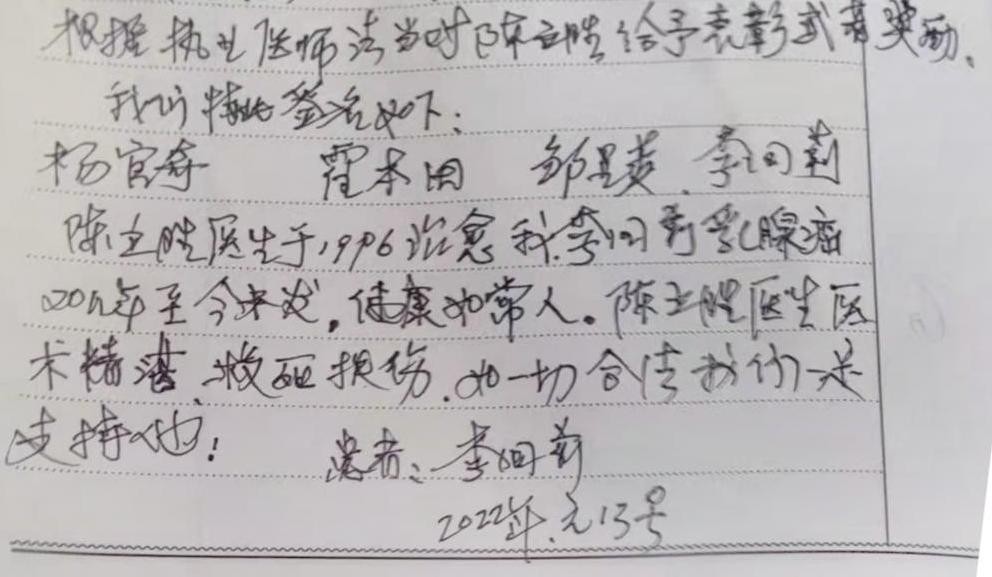 根据执业医师法当时陈立胜给予表彰或者奖励。
我们特此签名如下：
杨官奇 霍本田 邹昌英、李回莉
陈立胜医生于1996治愈我李回莉乳腺癌
20几年至今未发，健康如常人。陈立胜医生医
术精湛、救死扶伤，如一切合法我们一定
支持他！
患者：李回莉
2022年元13号